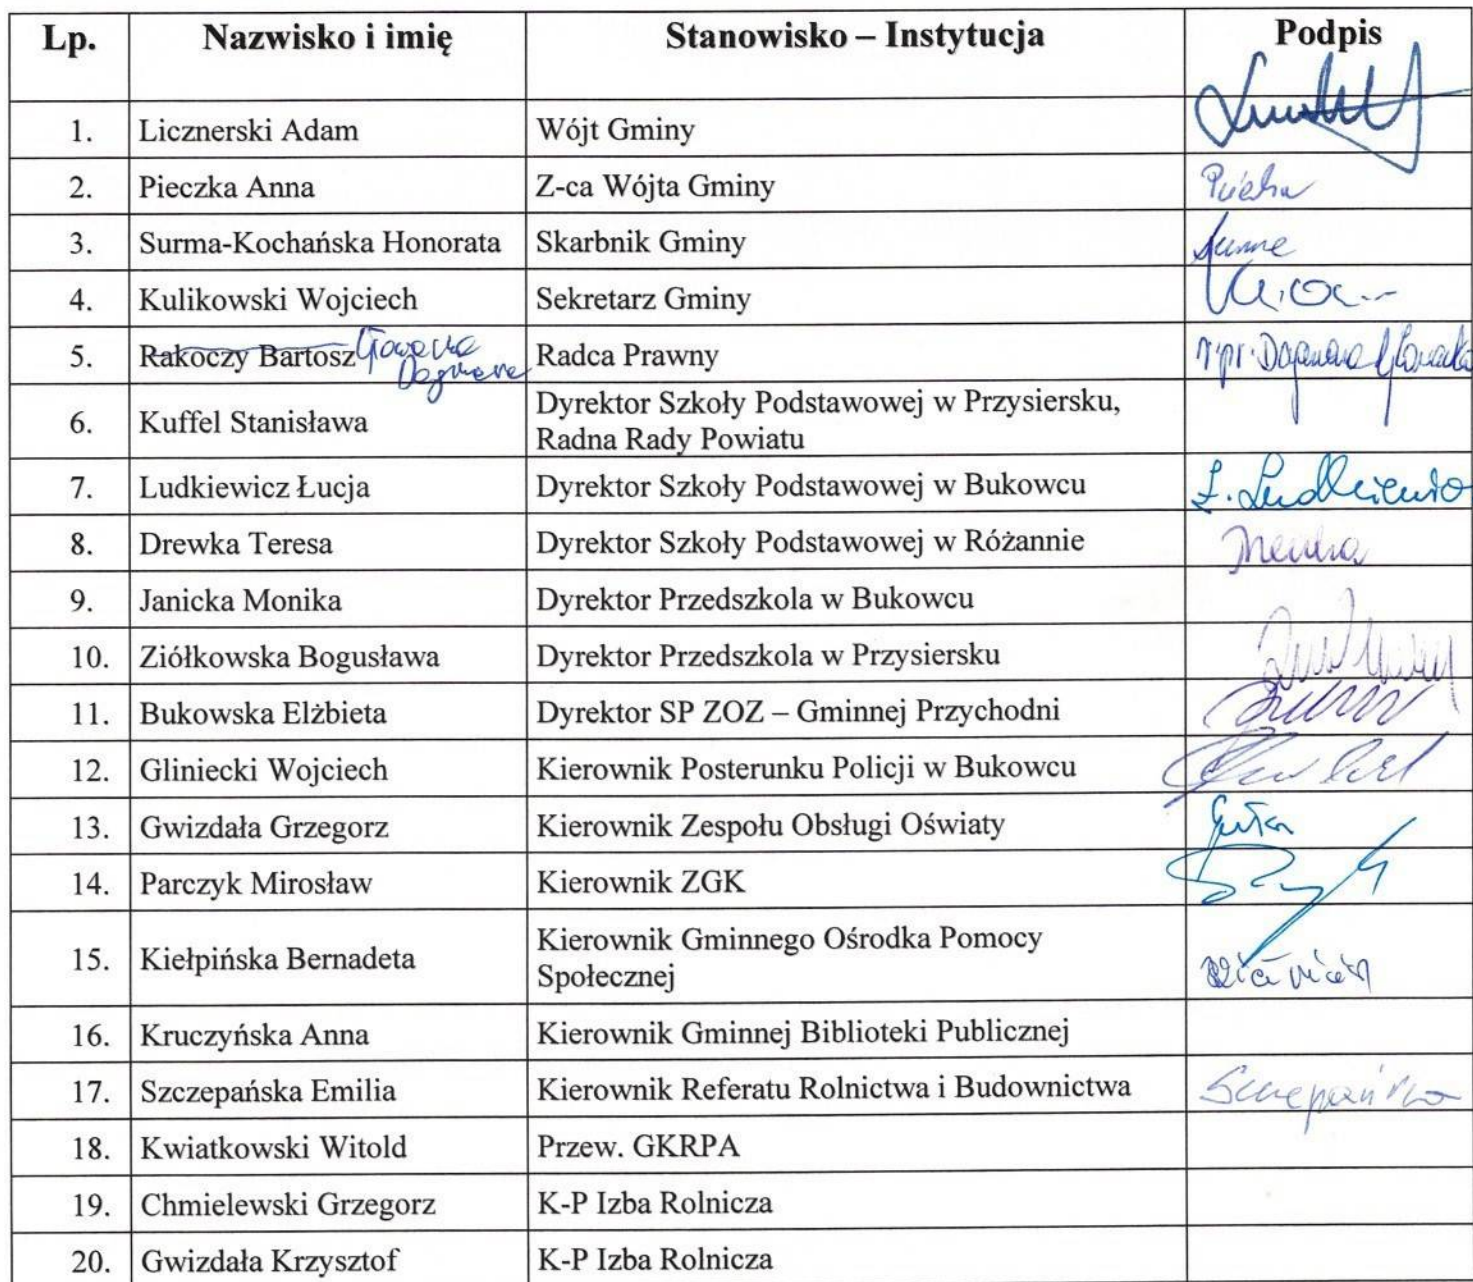 Lp. Nazwisko i imię Stanowisko – Instytucja Podpis
1. Licznerski Adam Wójt Gminy
2. Pieczka Anna Z-ca Wójta Gminy
3. Surma-Kochańska Honorata Skarbnik Gminy
4. Kulikowski Wojciech Sekretarz Gminy
5. Rakoczy Bartosz Głowacka Radca Prawny r.pr. Dagmara Głowacka
Dagmara
6. Kuffel Stanisława Dyrektor Szkoły Podstawowej w Przysiersku,
Radna Rady Powiatu
7. Ludkiewicz Łucja Dyrektor Szkoły Podstawowej w Bukowcu Ł. Ludkiewicz
8. Drewka Teresa Dyrektor Szkoły Podstawowej w Różannie
9. Janicka Monika Dyrektor Przedszkola w Bukowcu
10. Ziółkowska Bogusława Dyrektor Przedszkola w Przysiersku
11. Bukowska Elżbieta Dyrektor SP ZOZ – Gminnej Przychodni
12. Gliniecki Wojciech Kierownik Posterunku Policji w Bukowcu
13. Gwizdała Grzegorz Kierownik Zespołu Obsługi Oświaty
14. Parczyk Mirosław Kierownik ZGK
15. Kiełpińska Bernadeta Kierownik Gminnego Ośrodka Pomocy
Społecznej
16. Kruczyńska Anna Kierownik Gminnej Biblioteki Publicznej
17. Szczepańska Emilia Kierownik Referatu Rolnictwa i Budownictwa Szczepańska
18. Kwiatkowski Witold Przew. GKRPA
19. Chmielewski Grzegorz K-P Izba Rolnicza
20. Gwizdała Krzysztof K-P Izba Rolnicza